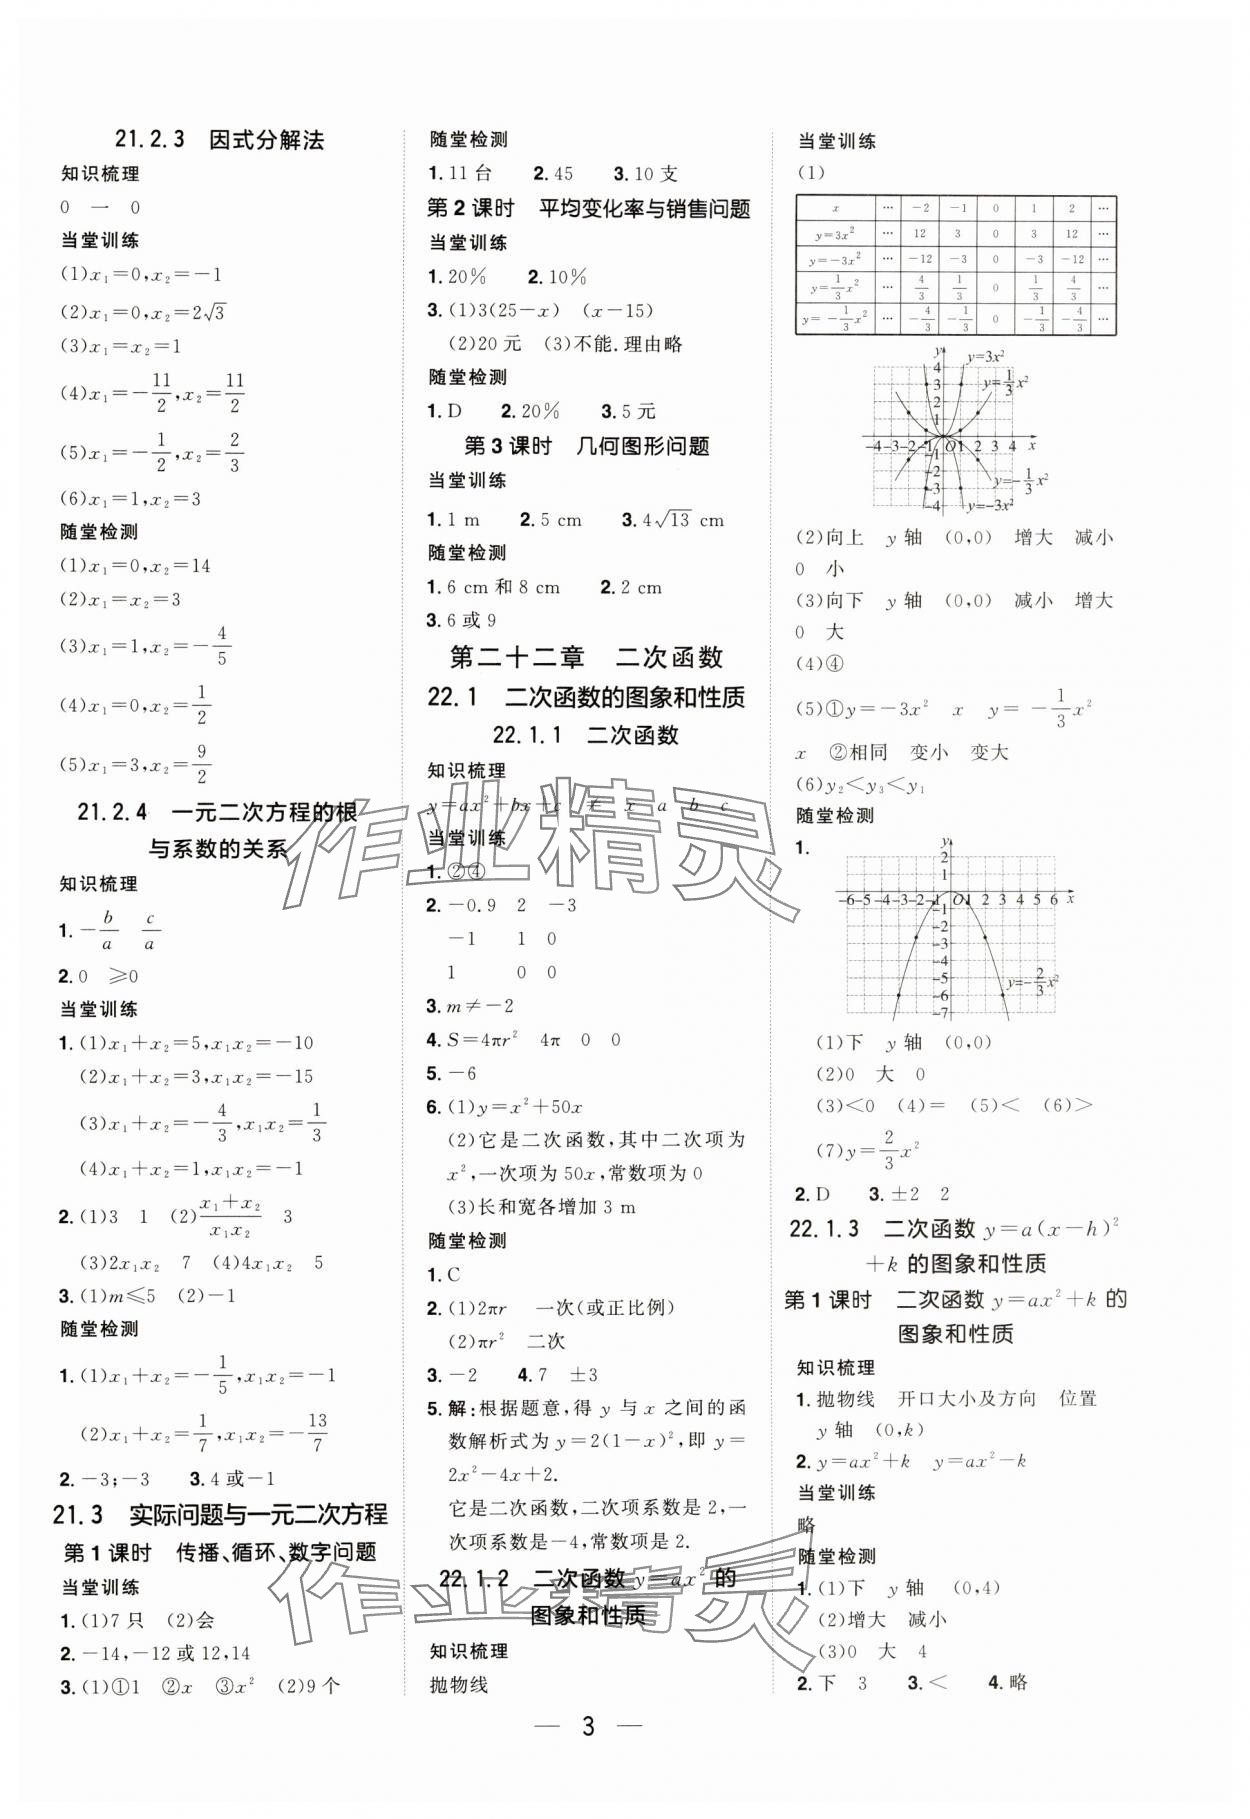 21.2.3 因式分解法
知识梳理
0 一 0
当堂训练
(1)x₁=0,x₂=-1
(2)x₁=0,x₂=2√3
(3)x₁=x₂=1
(4)x₁=-11/2,x₂=11/2
(5)x₁=-1/2,x₂=2/3
(6)x₁=1,x₂=3
随堂检测
(1)x₁=0,x₂=14
(2)x₁=x₂=3
(3)x₁=1,x₂=-4/5
(4)x₁=0,x₂=1/2
(5)x₁=3,x₂=9/2
21.2.4 一元二次方程的根
与系数的关系
知识梳理
1.-b/a c/a
2.0 ≥0
当堂训练
1.(1)x₁+x₂=5,x₁x₂=-10
(2)x₁+x₂=3,x₁x₂=-15
(3)x₁+x₂=-4/3,x₁x₂=1/3
(4)x₁+x₂=1,x₁x₂=-1
2.(1)3 1 (2)(x₁+x₂)/(x₁x₂) 3
(3)2x₁x₂ 7 (4)4x₁x₂ 5
3.(1)m≤5 (2)-1
随堂检测
1.(1)x₁+x₂=-1/5,x₁x₂=-1
(2)x₁+x₂=1/7,x₁x₂=-13/7
2.-3;-3 3.4或-1
21.3 实际问题与一元二次方程
第1课时 传播、循环、数字问题
当堂训练
1.(1)7只 (2)会
2.-14,-12或12,14
3.(1)①1 ②x ③x² (2)9个
随堂检测
1.11台 2.45 3.10支
第2课时 平均变化率与销售问题
当堂训练
1.20% 2.10%
3.(1)3(25-x) (x-15)
(2)20元 (3)不能.理由略
随堂检测
1.D 2.20% 3.5元
第3课时 几何图形问题
当堂训练
1.1 m 2.5 cm 3.4√13 cm
随堂检测
1.6 cm和8 cm 2.2 cm
3.6或9
第二十二章 二次函数
22.1 二次函数的图象和性质
22.1.1 二次函数
知识梳理
y=ax²+bx+c ≠ x a b c
当堂训练
1.②④
2.-0.9 2 -3
-1 1 0
1 0 0
3.m≠-2
4.S=4πr² 4π 0 0
5.-6
6.(1)y=x²+50x
(2)它是二次函数,其中二次项为
x²,一次项为50x,常数项为0
(3)长和宽各增加3 m
随堂检测
1.C
2.(1)2πr 一次(或正比例)
(2)πr² 二次
3.-2 4.7 ±3
5.解:根据题意,得y与x之间的函
数解析式为y=2(1-x)²,即y=
2x²-4x+2.
它是二次函数,二次项系数是2,一
次项系数是-4,常数项是2.
22.1.2 二次函数y=ax²的
图象和性质
知识梳理
抛物线
当堂训练
(1)
x … -2 -1 0 1 2 …
y=3x² … 12 3 0 3 12 …
y=-3x² … -12 -3 0 -3 -12 …
y=1/3x² … 4/3 1/3 0 1/3 4/3 …
y=-1/3x² … -4/3 -1/3 0 -1/3 -4/3 …
y y=3x²
4
3 y=1/3x²
2
1
-4-3-2-1 O 1 2 3 4 x
-1
-2
-3 y=-1/3x²
-4 y=-3x²
(2)向上 y轴 (0,0) 增大 减小
0 小
(3)向下 y轴 (0,0) 减小 增大
0 大
(4)④
(5)①y=-3x² x y=-1/3x²
x ②相同 变小 变大
(6)y₂<y₃<y₁
随堂检测
1.
y
2
1
-6-5-4-3-2-1 O 1 2 3 4 5 6 x
-1
-2
-3
-4
-5 y=-2/3x²
-6
-7
(1)下 y轴 (0,0)
(2)0 大 0
(3)<0 (4)= (5)< (6)>
(7)y=2/3x²
2.D 3.±2 2
22.1.3 二次函数y=a(x-h)²
+k的图象和性质
第1课时 二次函数y=ax²+k的
图象和性质
知识梳理
1.抛物线 开口大小及方向 位置
y轴 (0,k)
2.y=ax²+k y=ax²-k
当堂训练
略
随堂检测
1.(1)下 y轴 (0,4)
(2)增大 减小
(3)0 大 4
2.下 3 3.< 4.略
作业精灵
作业精灵
— 3 —